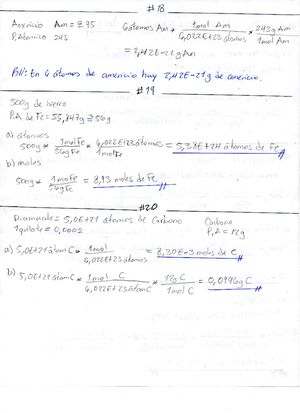 #18
Americio Am = Z 95
P. Atomico 243
6 átomos Am * 1mol Am / 6,022E+23 átomos * 243g Am / 1mol Am
= 2,42E-21 g Am
R//: En 6 átomos de americio hay 2,42E-21g de americio.
#19
500g de hierro
P.A de Fe = 55,847g ≅ 56g
a) átomos
500g * 1mol Fe / 56g Fe * 6,022E+23 átomos / 1mol Fe = 5,38E+24 átomos de Fe //
b) moles
500g * 1mol Fe / 56g Fe = 8,93 moles de Fe //
#20
Diamante = 5,0E+21 átomos de Carbono
1 quilate = 0,0002
Carbono
P.A = 12g
a) 5,0E+21 átom C * 1mol / 6,022E+23 átomos = 8,30E-3 moles de C //
b) 5,0E+21 átom C * 1mol C / 6,022E+23 átom C * 12g C / 1mol C = 0,0996g C //